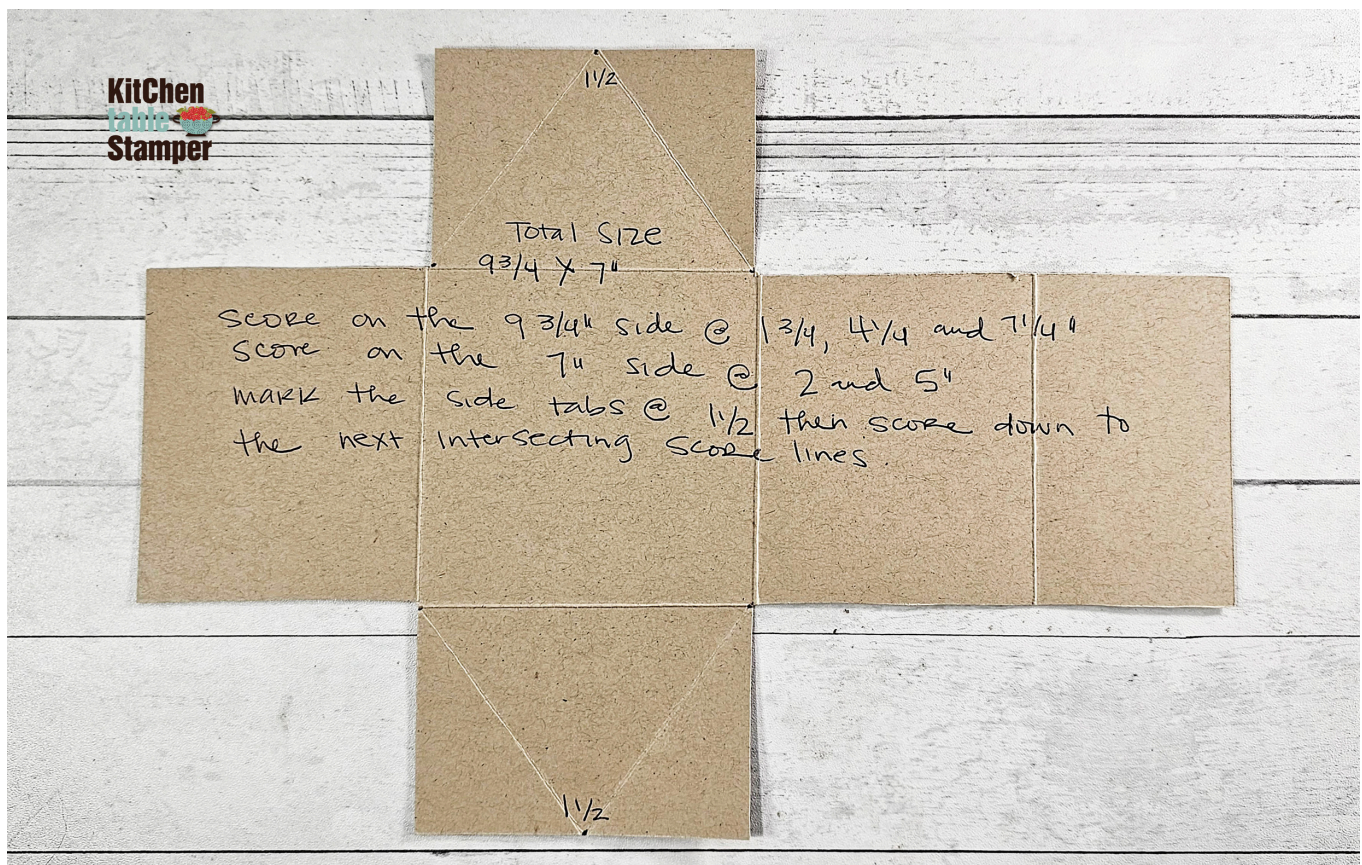 KitChen
table
Stamper
1 1/2
Total Size
9 3/4 X 7"
Score on the 9 3/4" side @ 1 3/4, 4 1/4 and 7 1/4"
Score on the 7" side @ 2 and 5"
mark the side tabs @ 1 1/2 then score down to
the next intersecting score lines
1 1/2